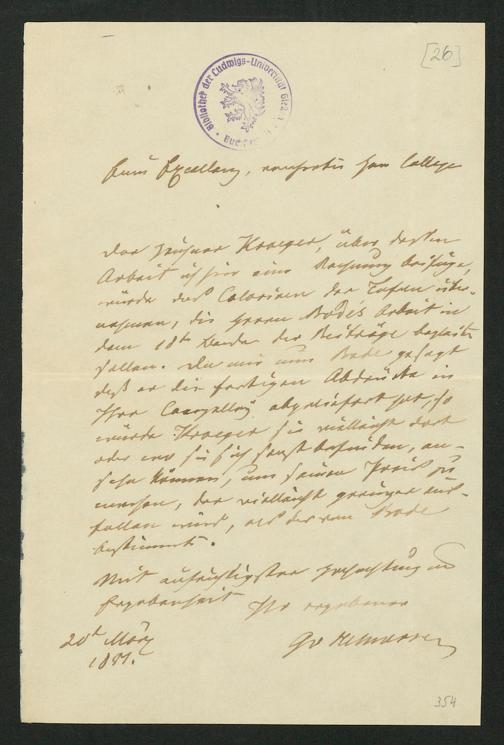 [26]
Bibliothek der Ludwigs-Universität Gießen
Eure Excellenz, verehrter Herr College
Der Zeichner Kroeger, über dessen
Arbeit ich hier eine Rechnung beifüge,
würde das Coloriren der Tafeln über-
nehmen, die Herrn Bode's Arbeit in
dem 18t Bande der Beiträge begleiten
sollen. Da mir nun Bode gesagt
daß er die fertigen Abdrücke in
Ihrer Canzellei abgeliefert hat, so
würde Kroeger sie vielleicht dort
oder wo sie sich sonst befinden, an-
sehn können, um seinen Preis zu
machen, der vielleicht geringer aus-
fallen wird, als der von Bode
bestimmte.
Mit aufrichtigster Hochachtung und
Ergebenheit
Ihr ergebener
Gv Helmersen
20t März
354